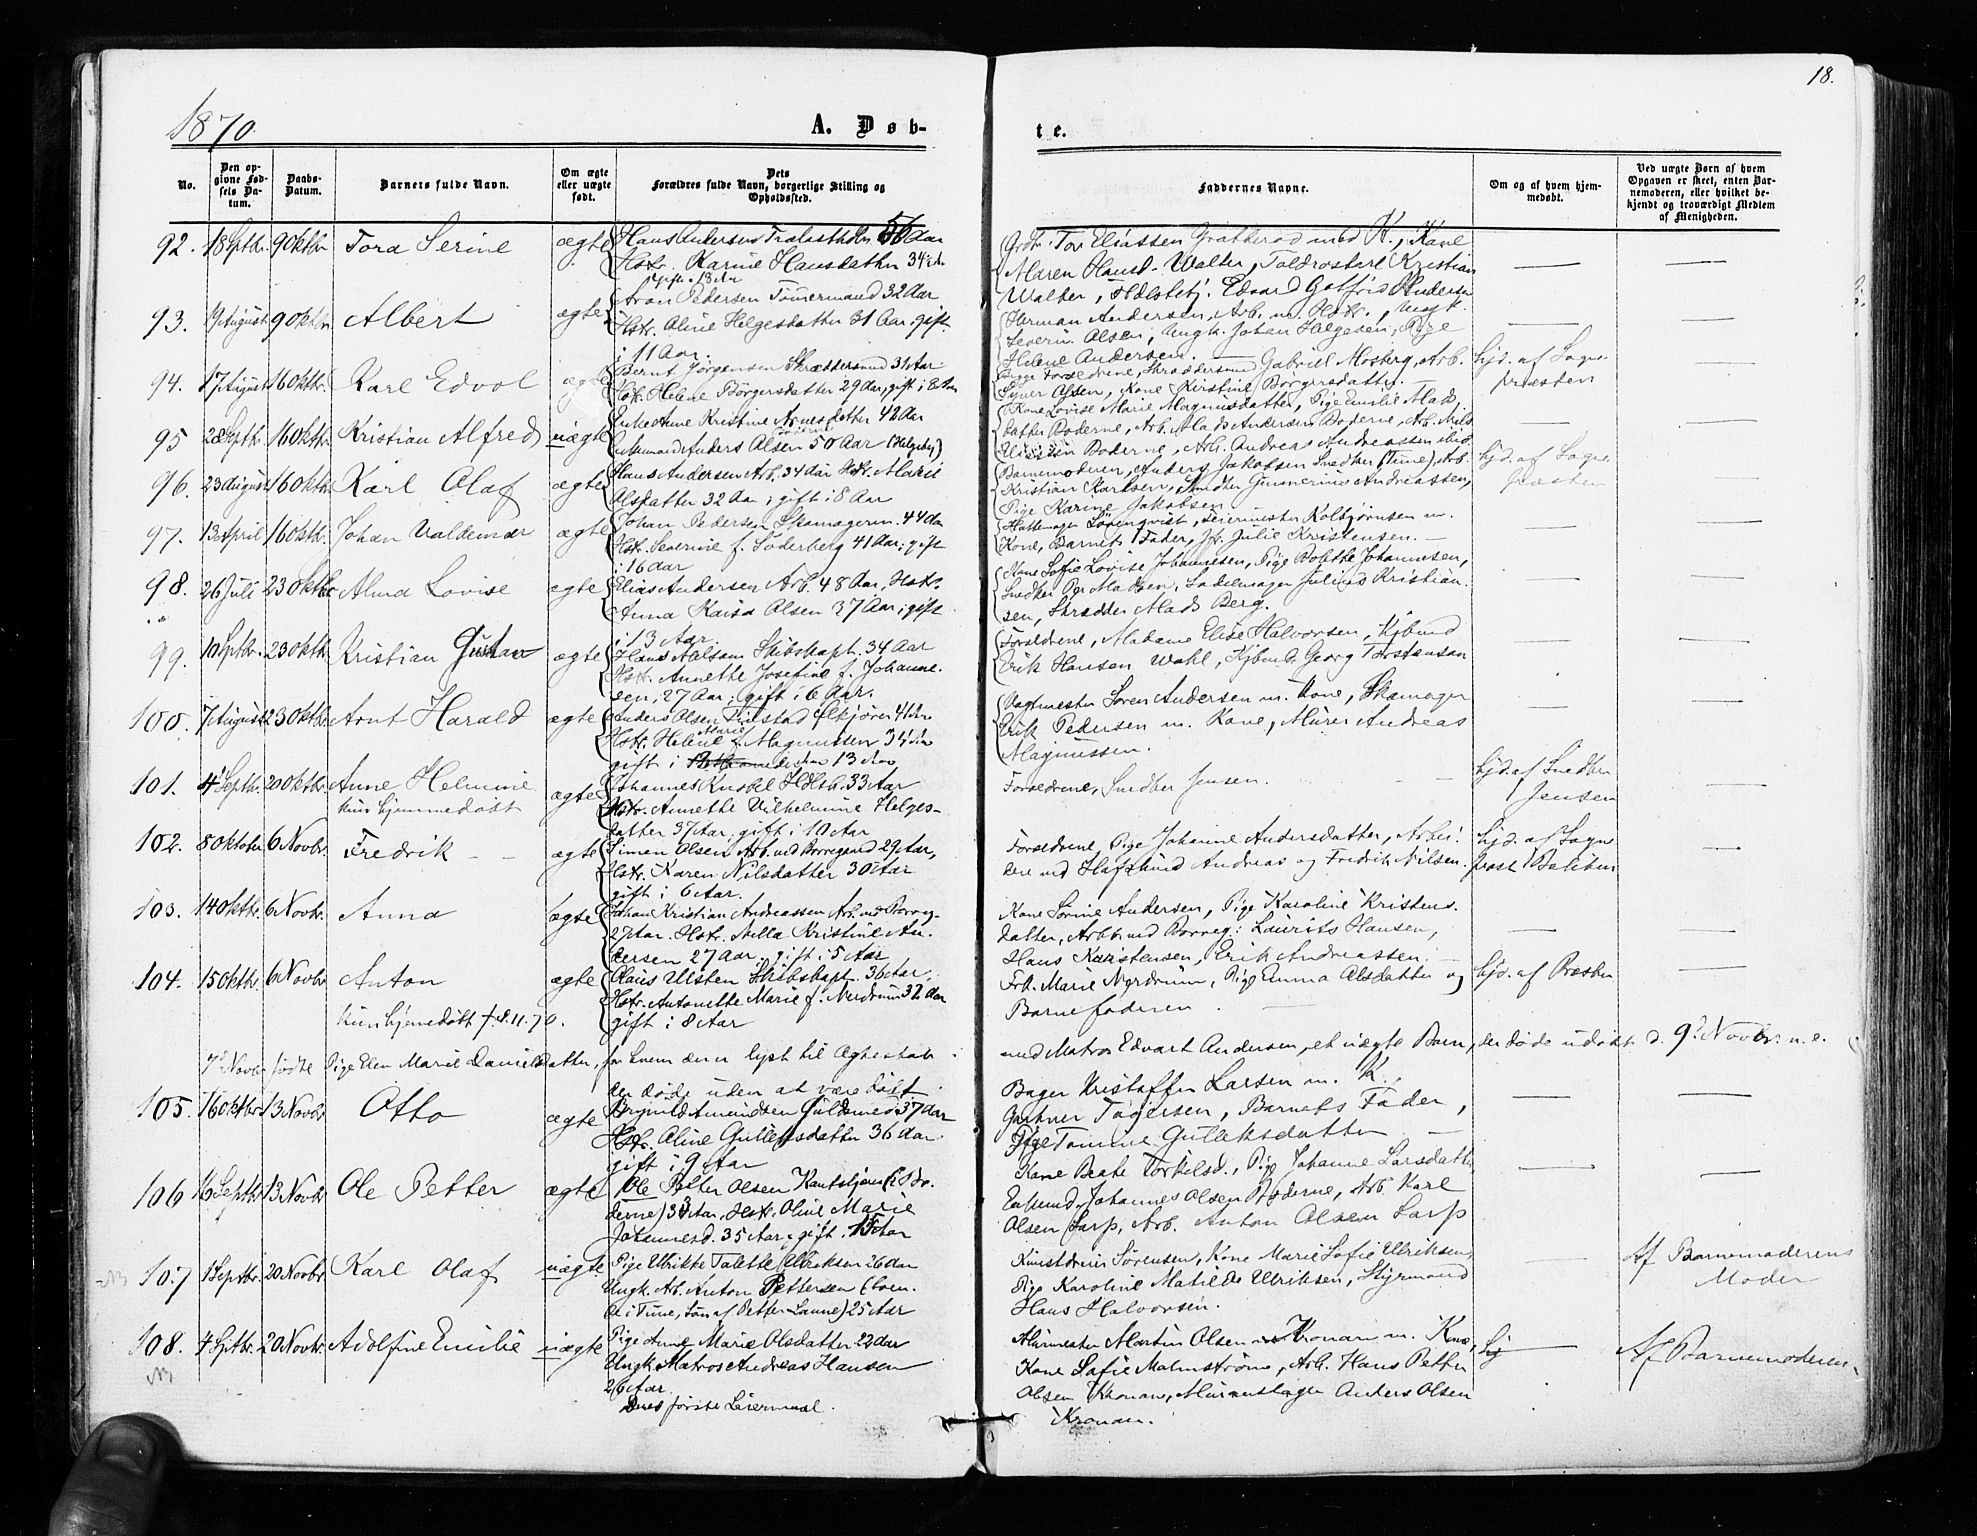 18.
1870
A. Døb-
te.
No.
Den op-
givne Fød-
sels Da-
tum.
Daabs-
Datum.
Barnets fulde Navn.
Om ægte
eller uægte
født.
Dets
Forældres fulde Navn, borgerlige Stilling og
Opholdssted.
Faddernes Navne.
Om og af hvem hjem-
medøbt.
Ved uægte Børn af hvem
Opgaven er skeet, enten Bar-
nemoderen, eller hvilket be-
kjendt og troværdigt Medlem
af Menigheden.
92. 18 Septbr. 9 Oktbr. Tora Serine ægte Hans Andersen 56 Aar
Hstr. Karine Hansdatter 34 Aar
gift i 13 Aar
Maren Hansd. Walter, Kristian
Walter, Edvard Gotfrid Andersen
93. 9 August 9 Oktbr. Albert ægte Aron Pedersen Tømermand 32 Aar
Hstr. Aline Helgesdatter 31 Aar, gift
i 11 Aar.
Herman Andersen, Arb. m. Hstr., Ungk.
Severin Olsen, Ungk. Johan Helgesen, Pige
Helene Andersen.
94. 17 August 16 Oktbr. Karl Edvol ægte Bernt Jørgensen Skræddersvend 31 Aar
Hstr. Helene Børgersdatter 29 Aar, gift i 8 Aar
Forældrene, Skræddersvend Gabriel Mosberg, Arb.
Syver Olsen, Kone Kirstine Børgersdatter.
hjd. af Sogne-
præsten
95 2 Septbr. 16 Oktbr. Kristian Alfred uægte Enke Anne Kristine Arnesdatter 42 Aar
Enkemand Anders Olsen 50 Aar
Kone Lovise Marie Magnusdatter, Pige Emilie Mads-
datter Boderne, Arb. Mads Andersen Boderne, Arb. Nils
Boderne, Arb. Andreas Andreassen
96. 23 August 16 Oktbr. Karl Olaf ægte Hans Andersen Arb. 34 Aar Hstr. Marie
Olsdatter 32 Aar, gift i 8 Aar
Barnemoderen, Anders Jakobsen Snedker (Tune), Arb.
Kristian Karlsen, Smedker Gunnerius Andreassen,
Pige Karine Jakobsen
hjd. af Sogne-
præsten
97. 13 April 16 Oktbr. Johan Valdemar ægte Johan Pedersen Skomagerm. 44 Aar
Hstr. Severine f. Søderberg 41 Aar, gift
i 16 Aar
Hattemager Løvenqvist, Kolbjørnsen m.
Kone, Barnets Fader, Julie Kristensen.
98. 26 Juli 23 Oktbr. Alma Lovise ægte Elias Andersen Arb. 48 Aar, Hstr.
Anna Kaisa Olsen 37 Aar, gift
i 13 Aar.
Kone Sofie Lovise Johannesen, Pige Bolette Johannesen,
Snedker Per Madsen, Sadelmager Julius Kristian-
sen, Skrædder Mads Berg.
99. 10 Septbr. 23 Oktbr. Kristian Gustav ægte Hans Skibskapt. 34 Aar
Hstr. Annette Josefine f. Johanne-
sen, 27 Aar, gift i 6 Aar.
Forældrene, Madame Elise Halvorsen, Kjbmd.
Erik Hansen Wahl, Kjbmd. Georg Torstensen
100. 7 August 23 Oktbr. Arnt Harald ægte Anders Olsen 41 Aar
Hstr. Helene Marie f. Magnussen 34 Aar
gift i 13 Aar
Vagtmester Søren Andersen m. Kone, Skomager
Erik Pedersen m. Kone, Murer Andreas
Magnussen.
101. 4 Septbr. 20 Oktbr. Anne Helmine ægte Johannes 33 Aar
kun hjemmedøbt
Hstr. Annette Vilhelmine Helges-
datter 37 Aar, gift i 10 Aar
Forældrene, Snedker Jensen.
hjd. af Snedker
Jensen
102. 8 Oktober 6 Novbr. Fredrik ægte Simen Olsen Arb. ved Borregaard 29 Aar,
Hstr. Karen Nilsdatter 30 Aar
gift i 6 Aar.
Forældrene, Pige Johanne Andersdatter, Arbei-
dere ved Hafslund Andreas og Fredrik Nilsen.
hjd. af Sogne-
præst
103. 14 Oktbr. 6 Novbr. Anna ægte Johan Kristian Andreassen Arb. ved Borreg.
27 Aar. Hstr. Kristine An-
dersen 27 Aar, gift i 5 Aar
Kone Sørine Andersen, Pige Karoline Kristens-
datter, Arbb. ved Borreg.: Laurits Hansen,
Hans Karstensen, Erik Andreassen.
104. 15 Oktbr. 6 Novbr. Anton ægte Claus Ulsten Skibskapt. 36 Aar,
Hstr. Antonette Marie f. Nerdrum 32 Aar
gift i 8 Aar
kun hjemedøbt † 8.11.70.
Frk. Marie Nerdrum, Pige Emma Olsdatter og
Barnefaderen.
hjd. af Præsten
7d Novbr. fødte Pige Elen Marie Danielsdatter, for hvem der er lyst til Ægteskab
med Matros Edvart Andersen, et uægte Barn, der døde udøbt d. 9d Novbr. n. e.
der døde uden at være døbt
105. 16 Oktbr. 13 Novbr. Otto ægte Amundsen Guldsmed 37 Aar
Hstr. Aline Gulleksdatter 36 Aar
gift i 9 Aar
Bager Kristoffer Larsen m. K.,
Gartner Tøgersen, Barnets Fader,
Pige Tomine Guleksdatter
106 16 Septbr. 13 Novbr. Ole Petter ægte Ole Petter Olsen (i Bo-
derne) 33 Aar, Hstr. Oline Marie
Johannesd. 35 Aar, gift i 15 Aar
Kone Beate Torkelsd., Pige Johanne Larsdatter
Enkemd. Johannes Olsen Boderne, Arb. Karl
Olsen Sarp, Arb. Anton Olsen Sarp
107. 1 Septbr. 20 Novbr. Karl Olaf uægte Pige Ulrikke Talette Ulriksen 26 Aar
Ungk. Arb. Anton Pettersen
i Tune, Søn af Petter 25 Aar
Kunstdreier Sørensen, Kone Marie Sofie Ulriksen,
Pige Karoline Matilde Ulriksen, Styrmand
Hans Halvorsen.
Af Barnemoderens
Moder
108. 4 Septbr. 20 Novbr. Adolfine Emilie uægte Pige Anne Marie Olsdatter 22 Aar
Ungk. Matros Andreas Hansen
26 Aar.
Deres første Leiermaal.
Martin Olsen Kronan m. Kone,
Kone Sofie Malmstrøm, Arb. Hans Petter
Olsen Kronan, Anders Olsen
Kronan.
Af Barnemoderen.